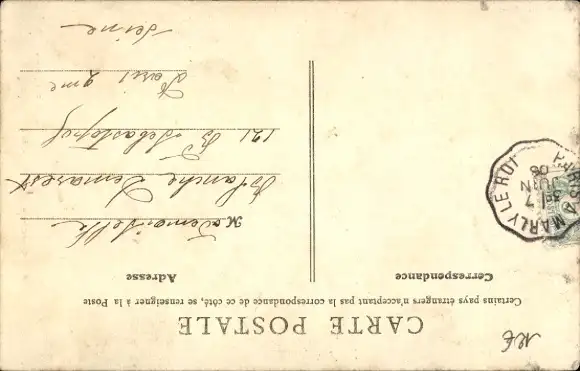 CARTE POSTALE
Certains pays étrangers n'acceptent pas la correspondance de ce côté, se renseigner à la Poste
Correspondance
Adresse
Mademoiselle
Blanche Demarest
121 Bd Sébastopol
Paris 2me
Seine
PARIS A MARLY LE ROI
7
JUIN
08